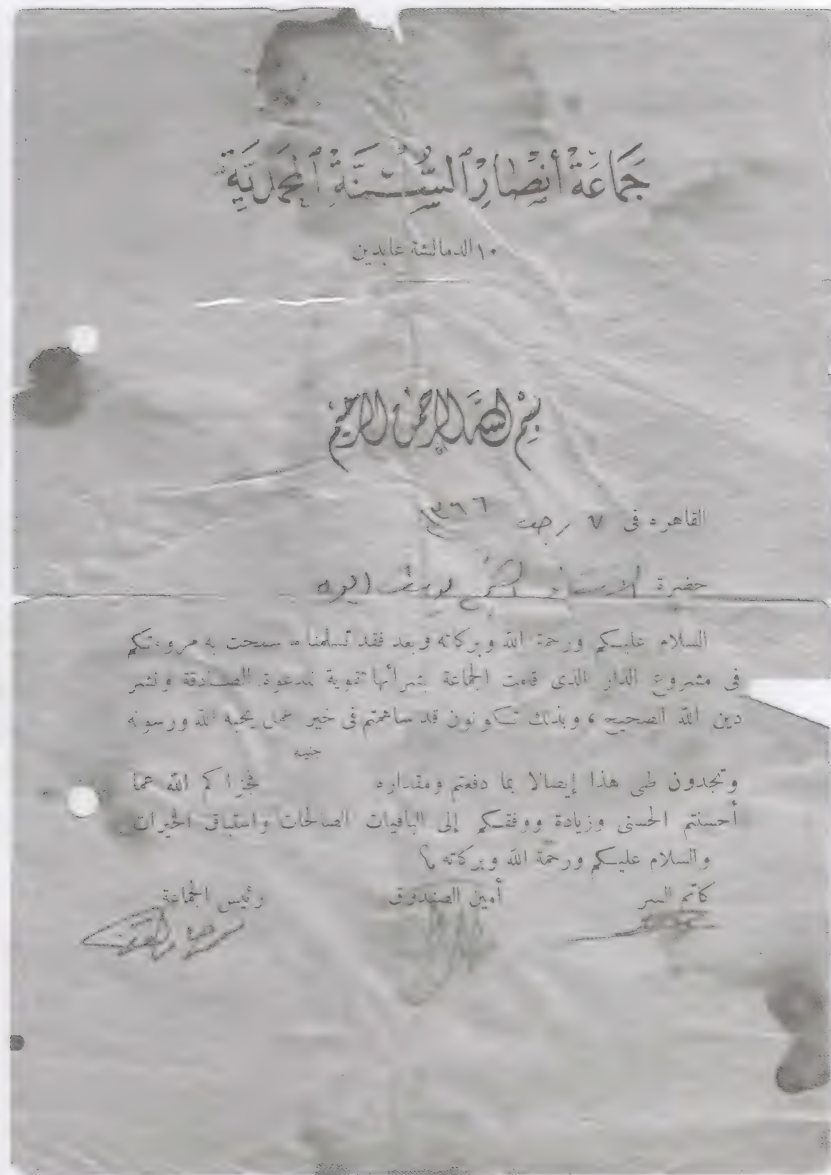 جَمَاعَة أَنْصَار السُّنَّة المحمَّديَّة
١٠ الدمالشة عابدين
بسم الله الرحمن الرحيم
القاهره فى ٧ رجب ١٣٦٦
حضرة الشيخ
السلام عليكم ورحمة الله وبركاته وبعد فقد تسلمنا ما سمحت به مروءتكم
فى مشروع الدار الذى قامت الجماعة بشرائها تقوية لدعوة الصادقة ونشر
دين الله الصحيح ، وبذلك تكونون قد ساهمتم فى خير عمل يحبه الله ورسوله
جنيه
وتجدون طى هذا إيصالا بما دفعتم ومقداره فجزاكم الله عما
أحسنتم الحسنى وزيادة ووفقكم إلى الباقيات الصالحات واستباق الخيرات
والسلام عليكم ورحمة الله وبركاته ؟
كاتم السر أمين الصندوق رئيس الجماعة